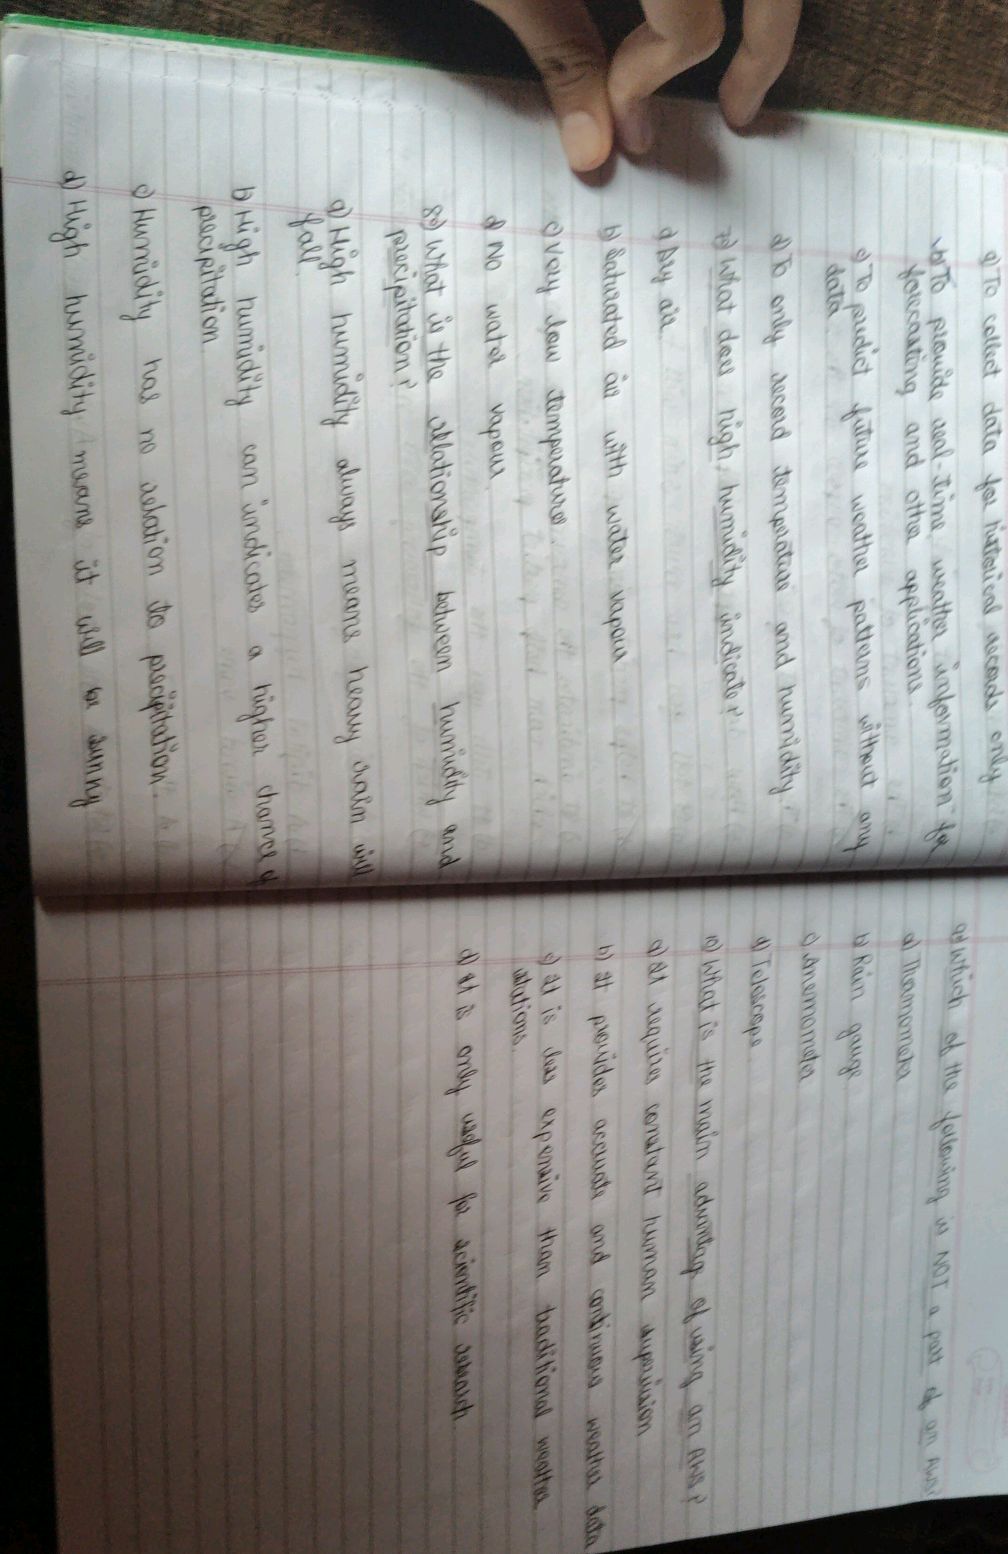 a) To collect data for historical records only
b) To provide real-time weather information for
forecasting and other applications.
c) To predict future weather patterns without any
data
d) To only record temperature and humidity
7) What does high humidity indicate?
a) Dry air
b) Saturated air with water vapour
c) Very low temperature
d) No water vapour
8) What is the relationship between humidity and
precipitation?
a) High humidity always means heavy rain will
fall
b) High humidity can indicates a higher chance of
precipitation
c) Humidity has no relation to precipitation.
d) High humidity means it will be sunny
9) Which of the following is NOT a part of an AWS?
a) Thermometer
b) Rain gauge
c) Anemometer
d) Telescope
10) What is the main advantage of using an AWS?
a) It requires constant human supervision
b) It provides accurate and continuous weather data
c) It is less expensive than traditional weather
stations.
d) It is only useful for scientific research